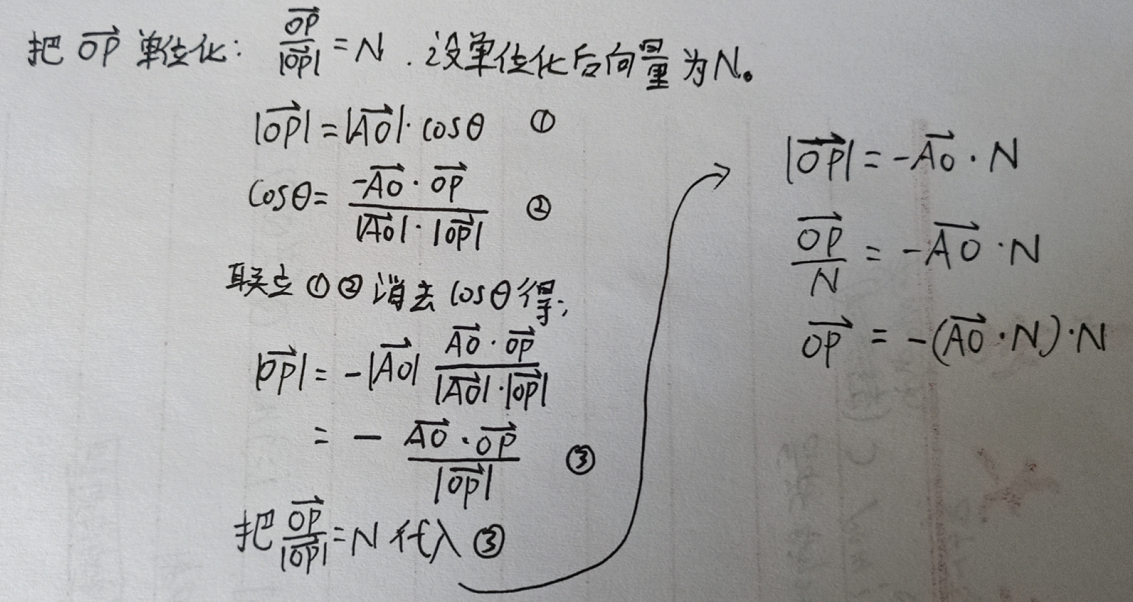 把 $\overrightarrow{OP}$ 单位化: $\frac{\overrightarrow{OP}}{|\overrightarrow{OP}|}=N$ . 设单位化后向量为N。
$|\overrightarrow{OP}|=|\overrightarrow{AO}|\cdot\cos\theta$ ①
$\cos\theta=\frac{-\overrightarrow{AO}\cdot\overrightarrow{OP}}{|\overrightarrow{AO}|\cdot|\overrightarrow{OP}|}$ ②
联立①②消去$\cos\theta$得:
$|\overrightarrow{OP}|=-|\overrightarrow{AO}|\frac{\overrightarrow{AO}\cdot\overrightarrow{OP}}{|\overrightarrow{AO}|\cdot|\overrightarrow{OP}|}$
$=-\frac{\overrightarrow{AO}\cdot\overrightarrow{OP}}{|\overrightarrow{OP}|}$ ③
把$\frac{\overrightarrow{OP}}{|\overrightarrow{OP}|}=N$代入③
$|\overrightarrow{OP}|=-\overrightarrow{AO}\cdot N$
$\frac{\overrightarrow{OP}}{N}=-\overrightarrow{AO}\cdot N$
$\overrightarrow{OP}=-(\overrightarrow{AO}\cdot N)\cdot N$